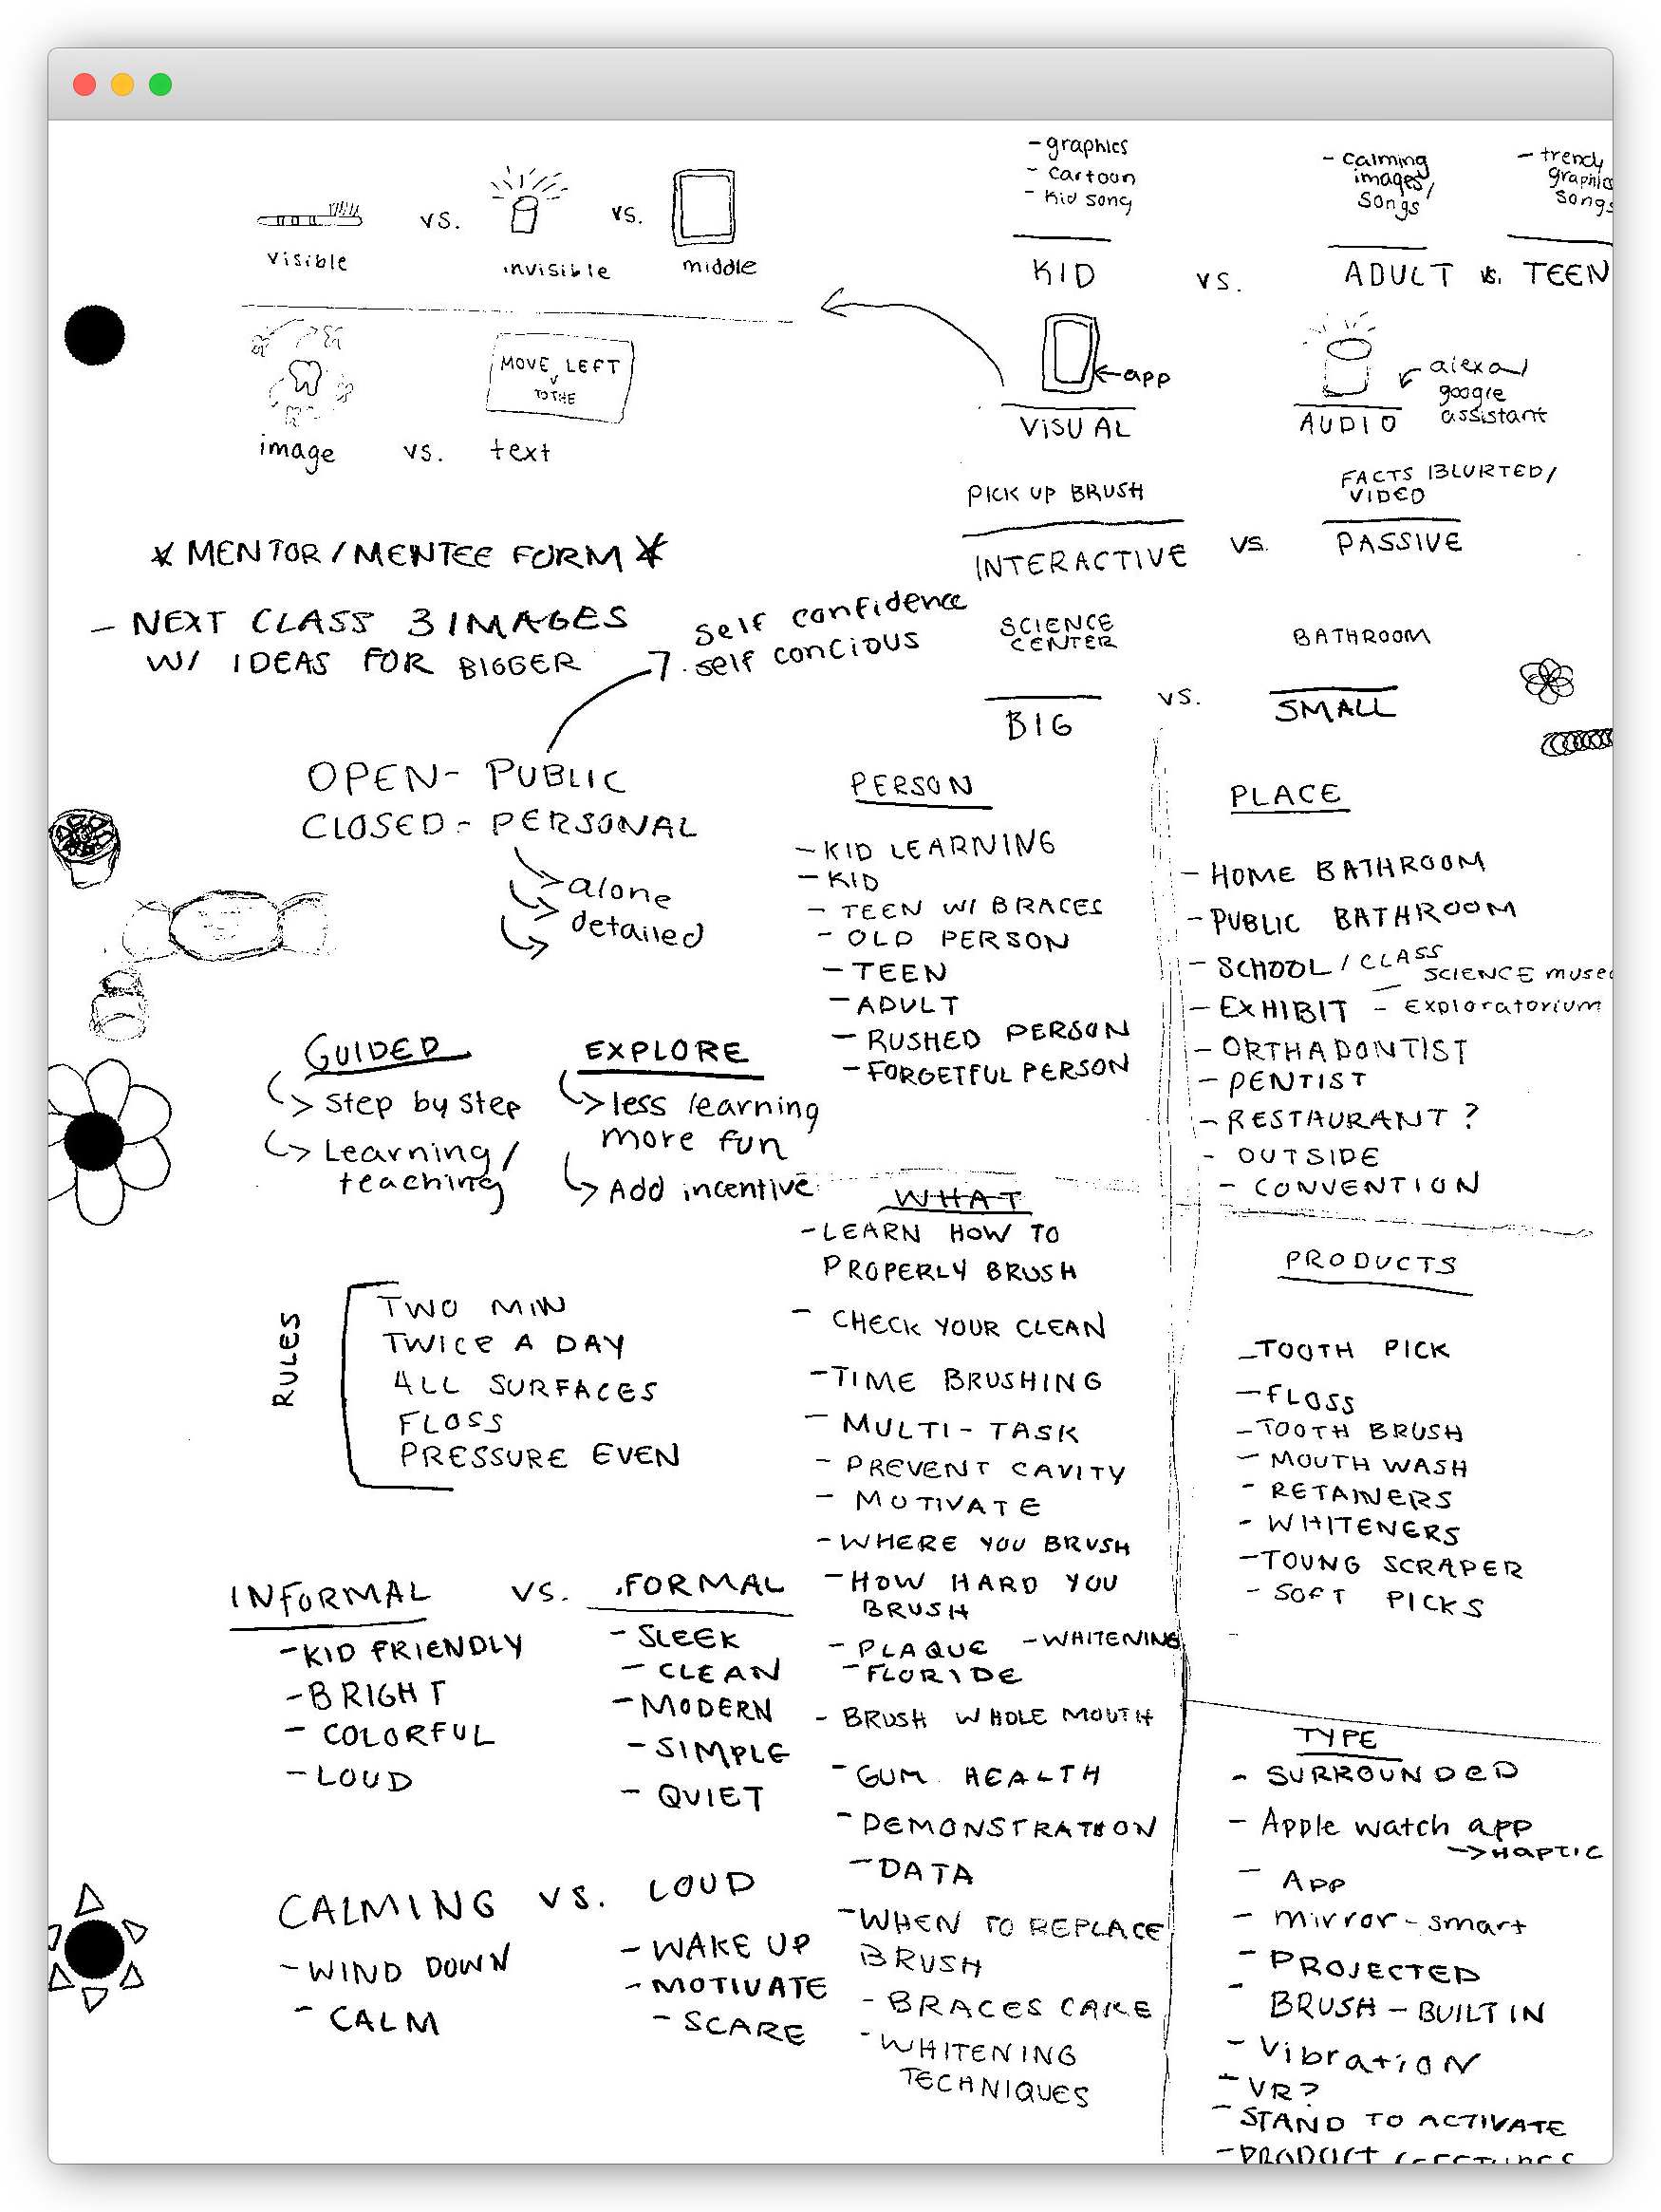 visible vs. invisible vs. middle
image vs. text
MOVE LEFT
TO THE
- graphics
- cartoon
- kid song
KID
vs.
- calming
images/
songs
ADULT
vs.
- trendy
graphics
songs
TEEN
app
VISUAL
alexa/
google
assistant
AUDIO
PICK UP BRUSH
INTERACTIVE
vs.
FACTS BLURTED/
VIDEO
PASSIVE
SCIENCE
CENTER
BIG
vs.
BATHROOM
SMALL
* MENTOR/MENTEE FORM *
- NEXT CLASS 3 IMAGES
W/ IDEAS FOR BIGGER
self confidence
self concious
OPEN - PUBLIC
CLOSED - PERSONAL
alone
detailed
GUIDED
step by step
Learning/
teaching
EXPLORE
less learning
more fun
Add incentive
RULES
TWO MIN
TWICE A DAY
ALL SURFACES
FLOSS
PRESSURE EVEN
INFORMAL vs. FORMAL
- KID FRIENDLY
- BRIGHT
- COLORFUL
- LOUD
- SLEEK
- CLEAN
- MODERN
- SIMPLE
- QUIET
CALMING vs. LOUD
- WIND DOWN
- CALM
- WAKE UP
- MOTIVATE
- SCARE
PERSON
- KID LEARNING
- KID
- TEEN W/ BRACES
- OLD PERSON
- TEEN
- ADULT
- RUSHED PERSON
- FORGETFUL PERSON
WHAT
- LEARN HOW TO
PROPERLY BRUSH
- CHECK YOUR CLEAN
- TIME BRUSHING
- MULTI-TASK
- PREVENT CAVITY
- MOTIVATE
- WHERE YOU BRUSH
- HOW HARD YOU
BRUSH
- PLAQUE - WHITENING
- FLORIDE
- BRUSH WHOLE MOUTH
- GUM HEALTH
- DEMONSTRATION
- DATA
- WHEN TO REPLACE
BRUSH
- BRACES CARE
- WHITENING
TECHNIQUES
PLACE
- HOME BATHROOM
- PUBLIC BATHROOM
- SCHOOL / CLASS
SCIENCE museu
- EXHIBIT - Exploratorium
- ORTHADONTIST
- DENTIST
- RESTAURANT?
- OUTSIDE
- CONVENTION
PRODUCTS
- TOOTH PICK
- FLOSS
- TOOTH BRUSH
- MOUTH WASH
- RETAINERS
- WHITENERS
- TOUNG SCRAPER
- SOFT PICKS
TYPE
- SURROUNDED
- Apple watch app
-> HAPTIC
- APP
- mirror-smart
- PROJECTED
- BRUSH - BUILT IN
- Vibration
- VR?
- STAND TO ACTIVATE
- PRODUCT